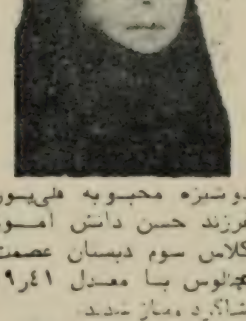 دوشیزه محبوبه قلی‌پور
فرزند حسن دانش آمـوز
کلاس سوم دبستان عصمت
چالوس بـا معـدل ۱۹٫۴۱
شاگرد ممتاز شدند